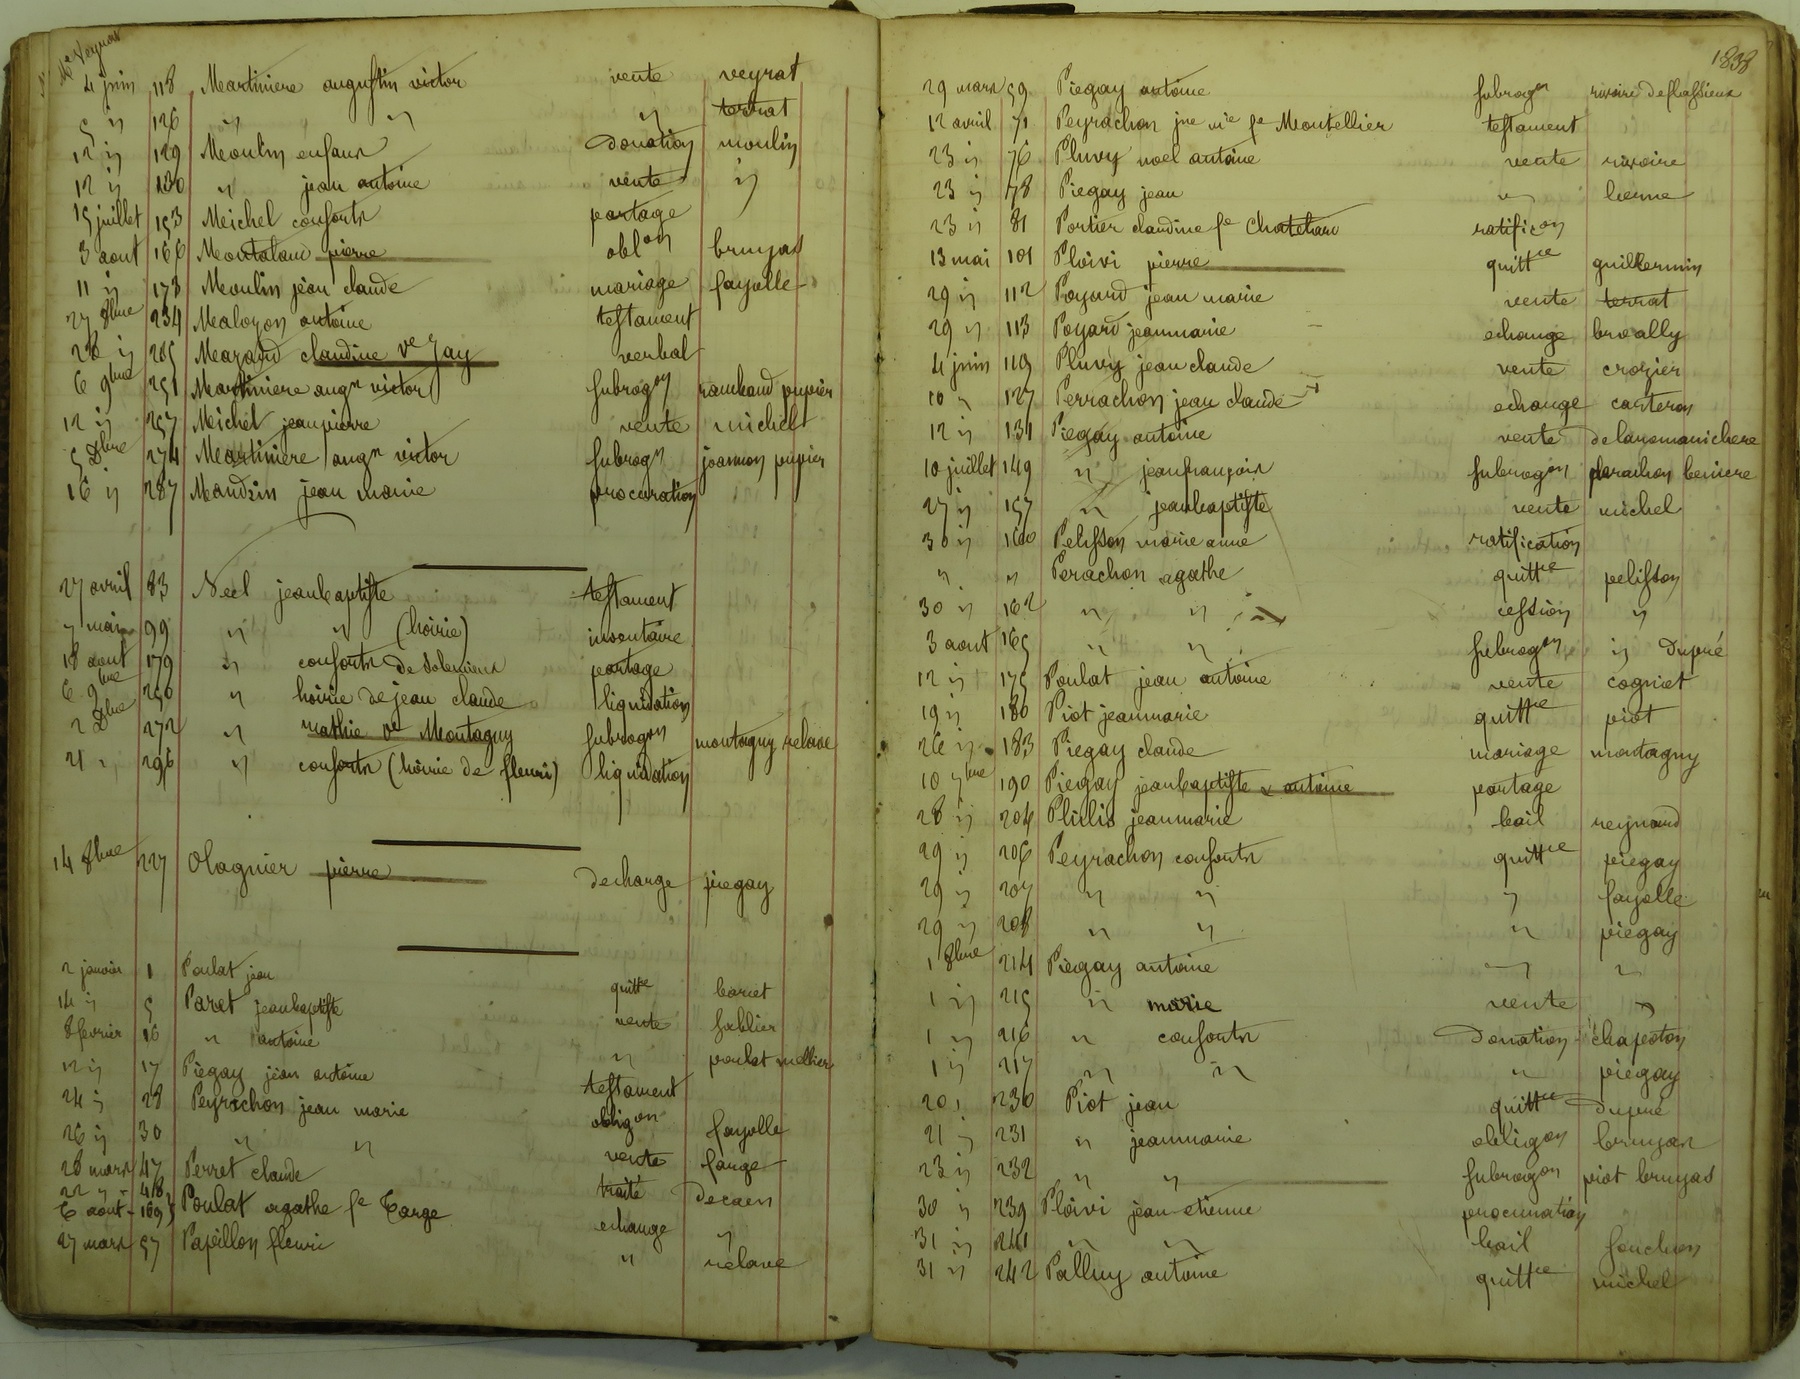 Me Veyrat
4 juin 118 Martiniere augustin victor vente veyrat
5 " 126 " " " terrat
12 " 129 Moulin enfans donation moulin
12 " 130 " jean antoine vente "
15 juillet 153 Meichel consorts partage
3 aout 166 Montaland pierre oblon bruyas
11 " 173 Moulin jean claude mariage fayolle
27 8bre 234 Malozon antoine testament
28 " 235 Mazard claudine ve Jay verbal
6 9bre 251 Martiniere augn victor subrogon rambaud pupier
12 " 257 Michel jean pierre vente michel
5 Xbre 274 Martiniere augn victor subrogn joannon pupier
16 " 287 Mandrin jean marie procuration
27 avril 83 Néel jean baptiste testament
7 mai 99 " " (hoirie) inventaire
18 aout 179 " consorts de Solemieux partage
6 9bre 250 " hoirie de jean claude liquidation
2 Xbre 272 " mathie ve Montagny subrogon montagny relave
21 " 296 " consorts (hoirie de fleuri) liquidation
14 8bre 227 Olagnier pierre decharge piegay
2 janvier 1 Poulat jean quittce baret
14 " 5 Paret jean baptiste vente sablier
8 fevrier 16 " antoine " poulat mellier
12 " 17 Piegay jean antoine testament
24 " 28 Peyrachon jean marie obligon fayolle
26 " 30 " " vente farge
28 mars 47 Perret claude traité Decaen
22 " 48
6 aout 169 Poulat agathe fe Targe echange "
27 mars 57 Papillon fleuri " relave
1838
29 mars 59 Piegay antoine subrogon rivoire deflassieux
12 avril 71 Peyrachon jne mie fe Montellier testament
23 " 76 Pluvy noel antoine vente rivoire
23 " 78 Piegay jean "
23 " 81 Portier claudine fe Chatelard ratificon
13 mai 101 Ploivi pierre quittce guillermin
29 " 112 Poyard jean marie vente terrat
29 " 113 Poyard jean marie echange broally
4 juin 119 Pluvy jean claude vente crozier
10 " 127 Perrachon jean claude echange carteron
12 " 131 Piegay antoine vente delaromanichere
10 juillet 149 " jean françois subrogon perachon beniere
27 " 157 " jean baptiste vente michel
30 " 160 Pelisson marie anne ratification
" " Perachon agathe quittce pelisson
30 " 162 " " cession "
3 aout 165 " " subrogon " Dupré
12 " 175 Poulat jean antoine vente cogniet
19 " 180 Piot jean marie quittce piot
26 " 183 Piegay claude mariage montagny
10 7bre 190 Piegay jean baptiste & antoine partage
28 " 204 Philis jean marie bail reynard
29 " 206 Peyrachon consorts quittce piegay
29 " 207 " " " fayolle
29 " 208 " " " piegay
1 8bre 214 Piegay antoine " "
1 " 215 " marie vente "
1 " 216 " consorts Donation chapoton
1 " 217 " " " piegay
20 " 230 Piot jean quittce Dupré
21 " 231 " jean marie obligon bruyas
23 " 232 " " subrogon piot bruyas
30 " 239 Ploivi jean etienne procuration
31 " 241 " " bail fouchon
31 " 242 Palluy antoine quittce michel